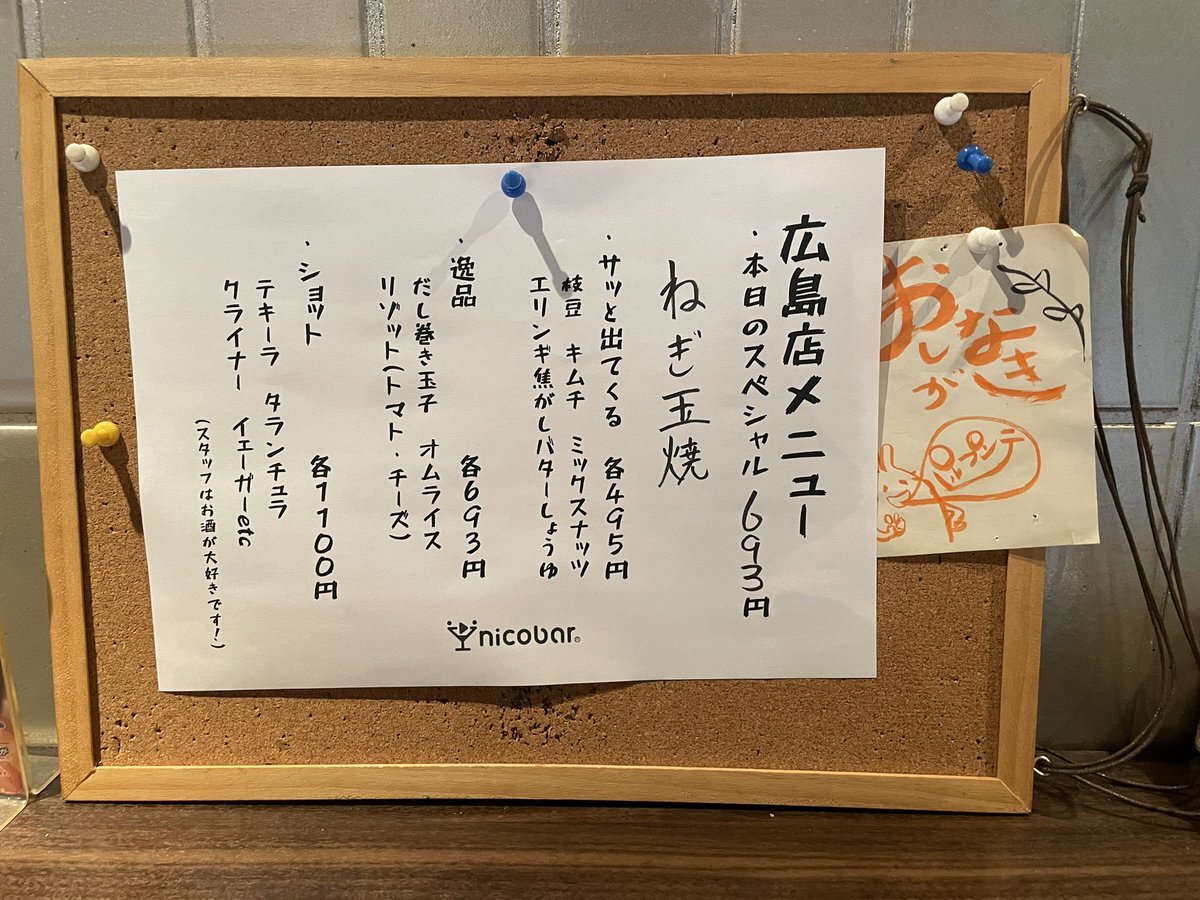 広島店メニュー
・本日のスペシャル 693円
ねぎ玉焼
・サッと出てくる 各495円
枝豆 キムチ ミックスナッツ
エリンギ焦がしバターしょうゆ
・逸品 各693円
だし巻き玉子 オムライス
リゾット(トマト・チーズ)
・ショット 各1100円
テキーラ タランチュラ
クライナー イェーガーetc
(スタッフはお酒が大好きです!)
nicobar®
おしながき